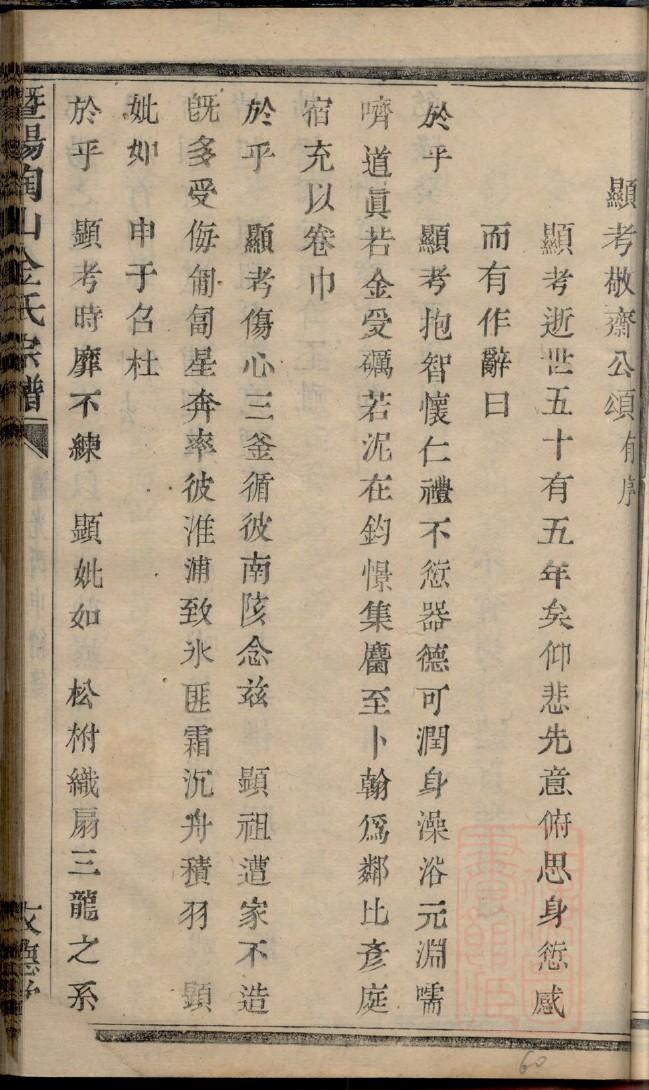 顯考敬齋公頌有序
顯考逝世五十有五年矣仰悲先意俯思身愆感
而有作辭曰
於乎　顯考抱智懷仁禮不愆器德可潤身澡浴元淵嚅
嚌道眞若金受礪若泥在鈞憬集麕至卜翰爲鄰比彥庭
宿充以卷巾
於乎　顯考傷心三釜循彼南陔念兹　顯祖遭家不造
旣多受侮匍匐星奔率彼淮浦致氷匪霜沉舟積羽　顯
妣如　申于名杜
於乎　顯考時靡不練　顯妣如　松柎織扇三龍之系
暨陽陶山金氏宗譜
60